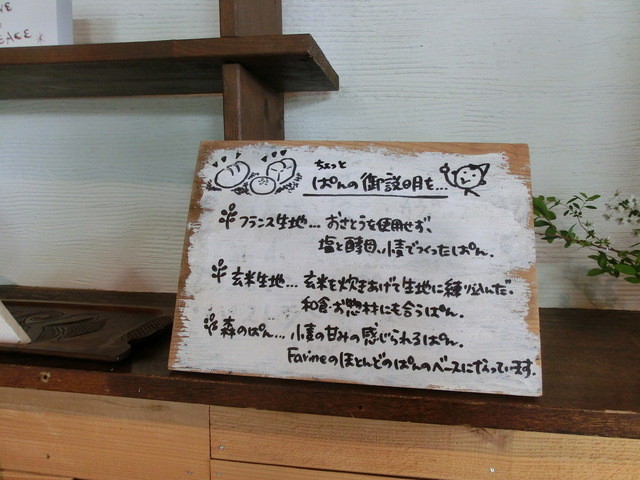 PEACE
ちょっと
ぱんの御説明を...
フランス生地... おさとうを使用せず、
塩と酵母、小麦でつくったぱん。
玄米生地... 玄米を炊きあげて生地に練り込んだ。
和食・お惣材にも合うぱん。
森のぱん... 小麦の甘みの感じられるぱん。
Farineのほとんどのぱんのベースになっています。